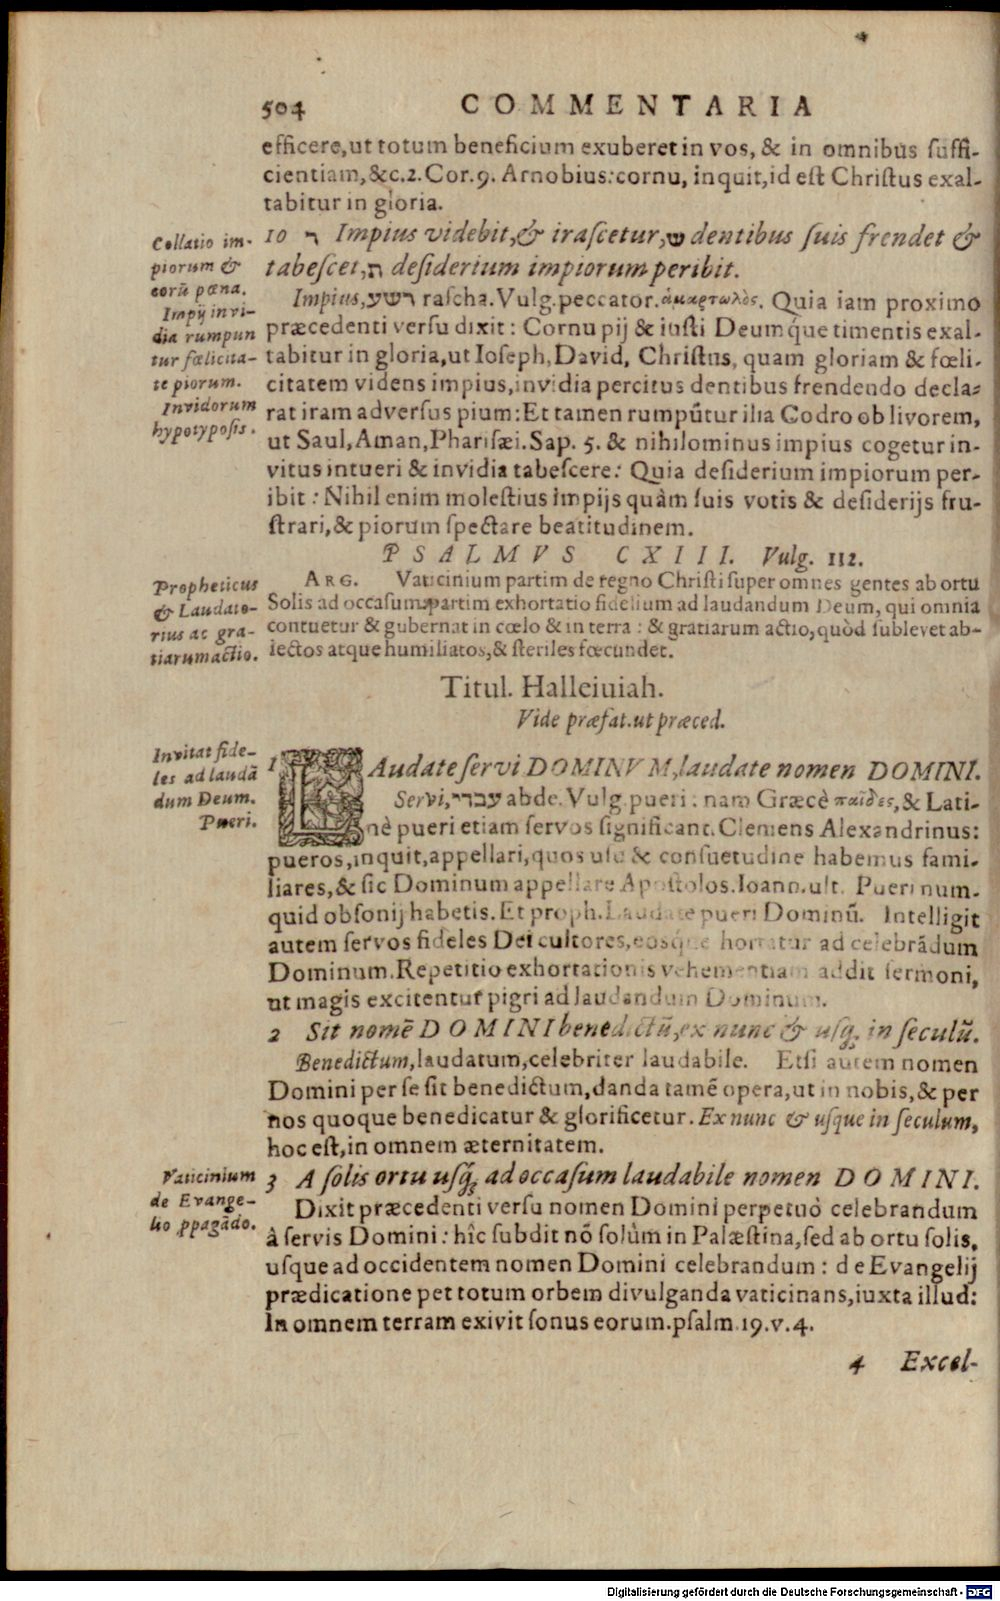 504 COMMENTARIA
efficere, ut totum beneficium exuberet in vos, & in omnibus suffi-
cientiam, &c. 2. Cor. 9. Arnobius: cornu, inquit, id est Christus exal-
tabitur in gloria.
Collatio im-
piorum &
eorū pœna.
Impij invi-
dia rumpun
tur fœlicita-
te piorum.
Invidorum
hypotyposis.
10 ר Impius videbit, & irascetur, ש dentibus suis frendet &
tabescet, ת desiderium impiorum peribit.
Impius, רשע rascha. Vulg. peccator. ἁμαρτωλὸς. Quia iam proximo
præcedenti versu dixit: Cornu pij & iusti Deumq́ue timentis exal-
tabitur in gloria, ut Ioseph, David, Christus, quam gloriam & fœli-
citatem videns impius, invidia percitus dentibus frendendo decla-
rat iram adversus pium: Et tamen rumpūtur ilia Codro ob livorem,
ut Saul, Aman, Pharisæi. Sap. 5. & nihilominus impius cogetur in-
vitus intueri & invidia tabescere: Quia desiderium impiorum per-
ibit: Nihil enim molestius impijs quàm suis votis & desiderijs fru-
strari, & piorum spectare beatitudinem.
PSALMVS CXIII. Vulg. 112.
Propheticus
& Laudato-
rius ac gra-
tiarum actio.
ARG. Vaticinium partim de regno Christi super omnes gentes ab ortu
Solis ad occasum: partim exhortatio fidelium ad laudandum Deum, qui omnia
contuetur & gubernat in cœlo & in terra: & gratiarum actio, quòd sublevet ab-
iectos atque humiliatos, & steriles fœcundet.
Titul. Halleluiah.
Vide præfat. ut præced.
Invitat fide-
les ad laudā
dum Deum.
Pueri.
1 LAudate servi DOMINVM, laudate nomen DOMINI.
Servi, עבדי abde. Vulg. pueri: nam Græcè παῖδες, & Lati-
nè pueri etiam servos significant. Clemens Alexandrinus:
pueros, inquit, appellari, quos usu & consuetudine habemus fami-
liares, & sic Dominum appellare Apostolos. Ioann. ult. Pueri num-
quid obsonij habetis. Et proph. Laudate pueri Dominū. Intelligit
autem servos fideles Dei cultores, eosque hortatur ad celebrādum
Dominum. Repetitio exhortationis vehementiam addit sermoni,
ut magis excitentur pigri ad laudandum Dominum.
2 Sit nomē DOMINI benedictū, ex nunc & usq; in seculū.
Benedictum, laudatum, celebriter laudabile. Etsi autem nomen
Domini per se sit benedictum, danda tamē opera, ut in nobis, & per
nos quoque benedicatur & glorificetur. Ex nunc & usque in seculum,
hoc est, in omnem æternitatem.
Vaticinium
de Evange-
lio ꝓpagādo.
3 A solis ortu usq́; ad occasum laudabile nomen DOMINI.
Dixit præcedenti versu nomen Domini perpetuò celebrandum
à servis Domini: hîc subdit nō solùm in Palæstina, sed ab ortu solis,
usque ad occidentem nomen Domini celebrandum: de Evangelij
prædicatione per totum orbem divulganda vaticinans, iuxta illud:
In omnem terram exivit sonus eorum. psalm. 19. v. 4.
4 Excel-
Digitalisierung gefördert durch die Deutsche Forschungsgemeinschaft - DFG